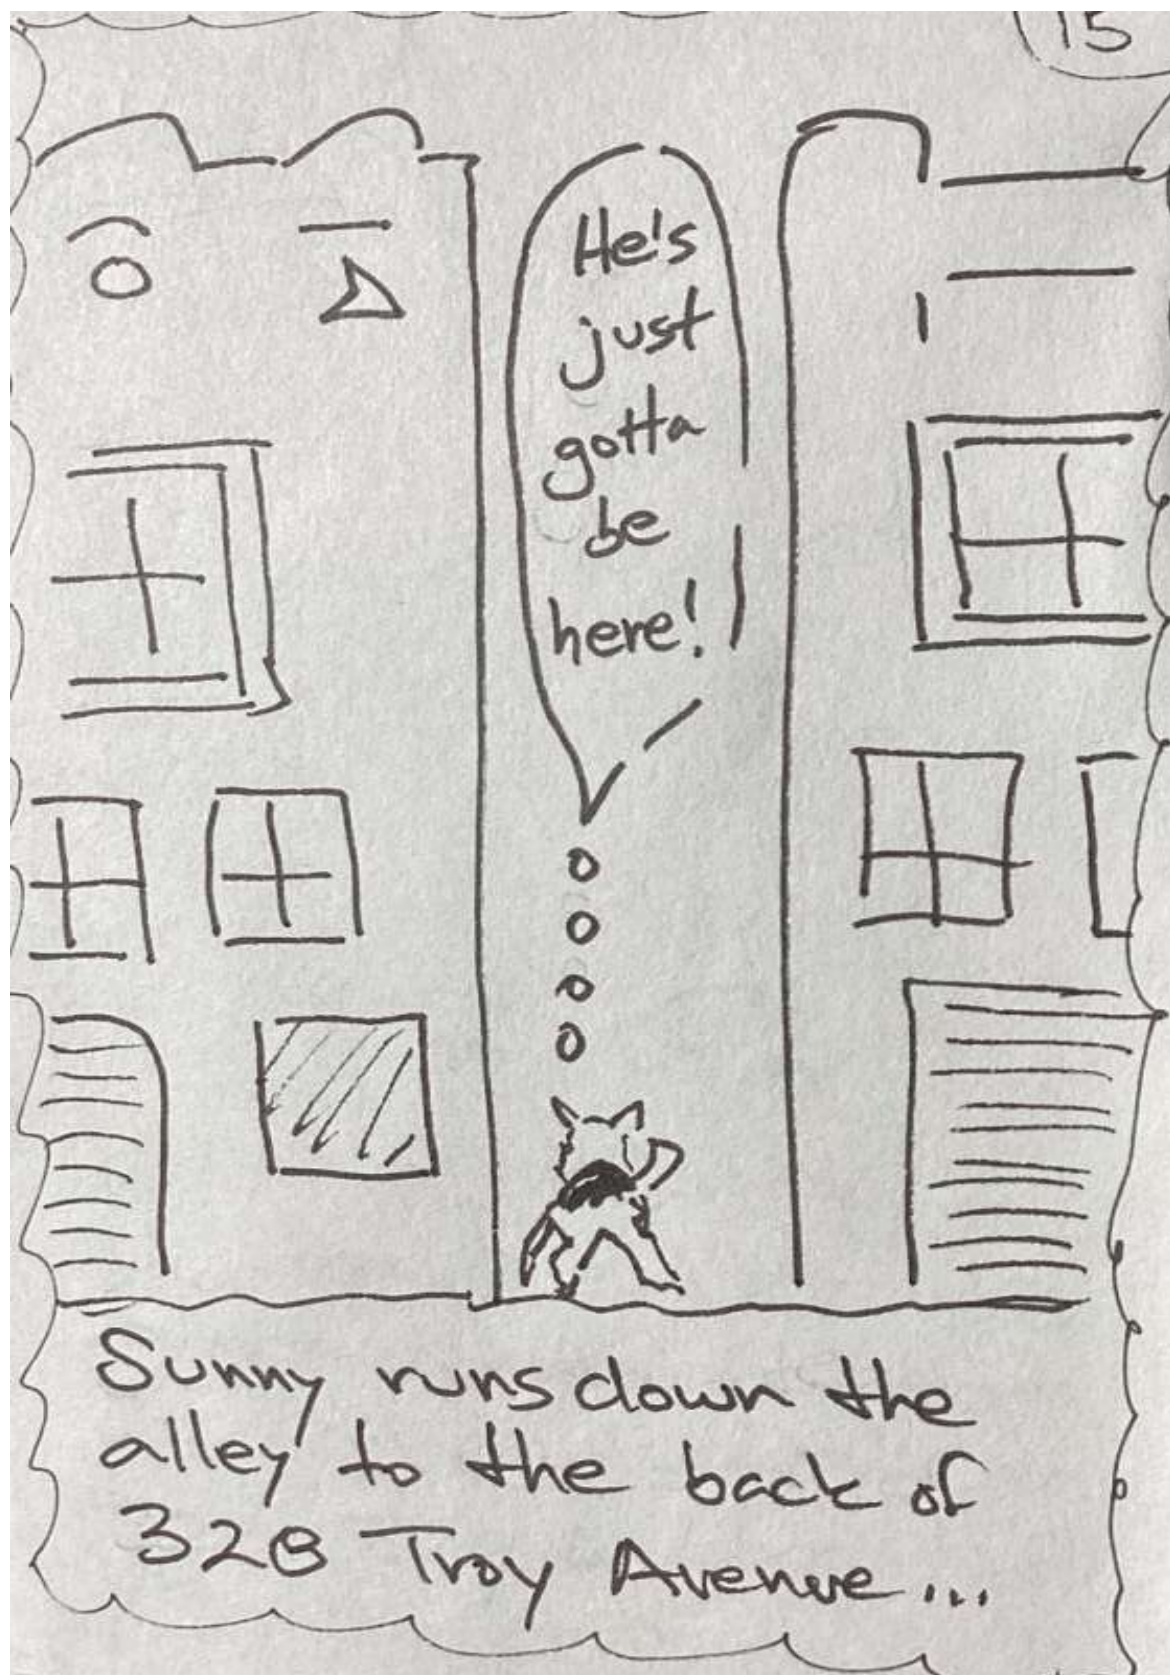 15
He's
just
gotta
be
here!
Sunny runs down the
alley to the back of
328 Troy Avenue...